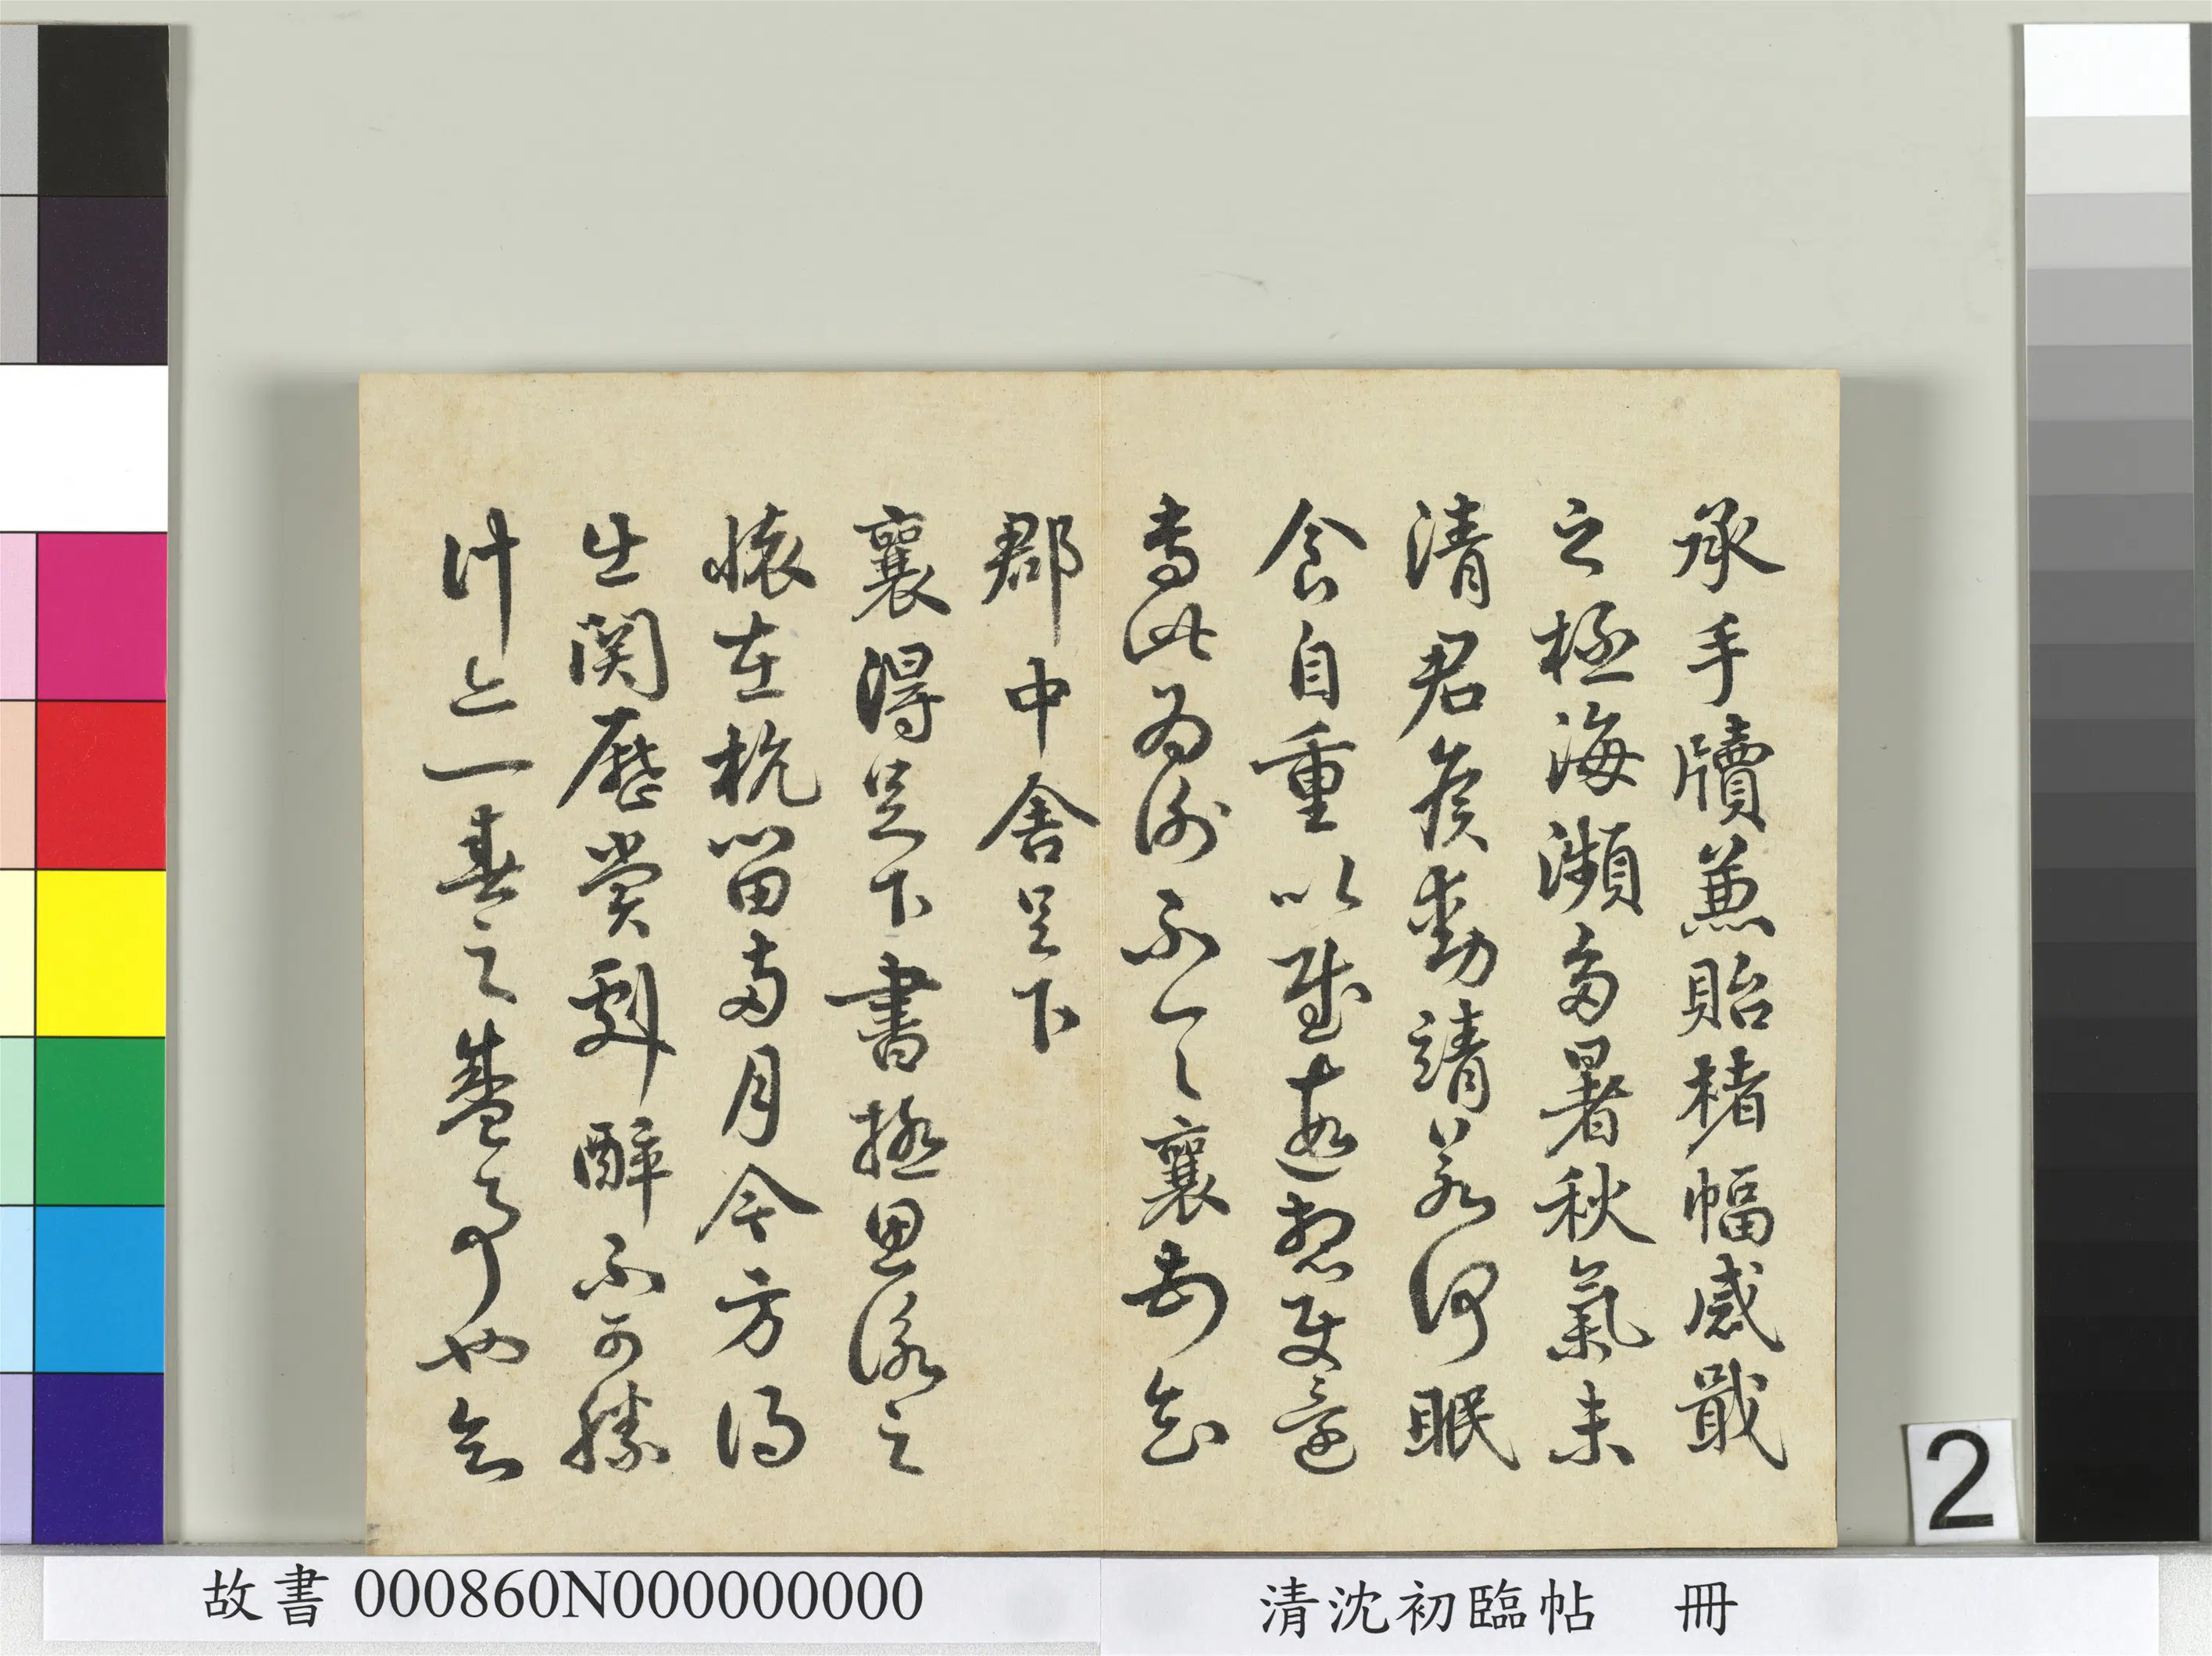 承手牘兼貽楮幅感戢
之極海瀕多暑秋氣未
清君侯動靖若何眠
食自重以慰遐想使還
專此為謝不一一襄知
郡中舍足下
襄得足下書極思詠之
懷在杭留兩月今方得
出關歷賞劇醉不可勝
計亦一春之盛事也知
2
故書000860N000000000
清沈初臨帖 冊